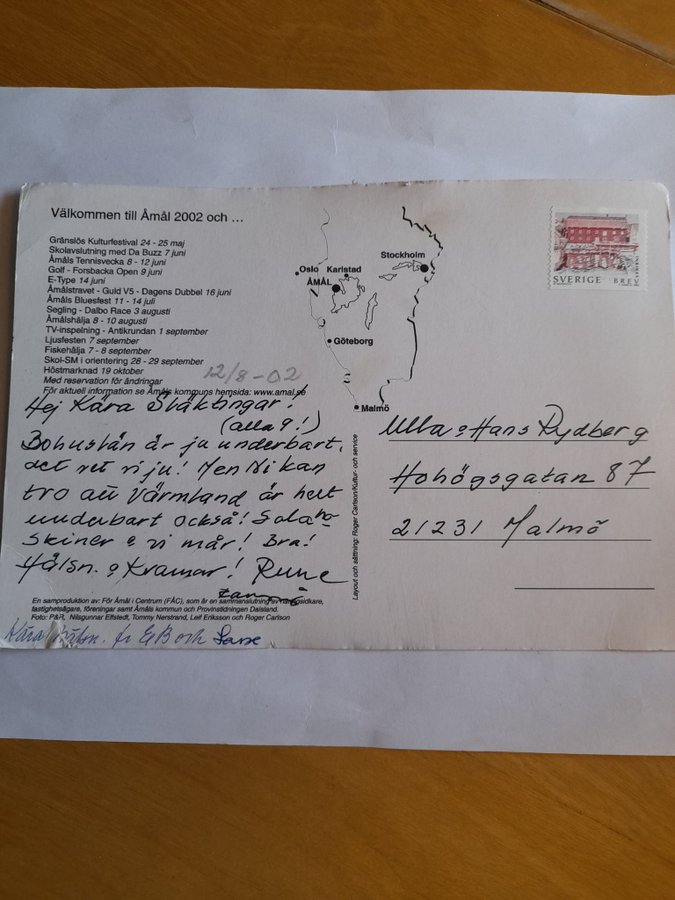 Välkommen till Åmål 2002 och ...
Gränslös Kulturfestival 24 - 25 maj
Skolavslutning med Da Buzz 7 juni
Åmåls Tennisvecka 8 - 12 juni
Golf - Forsbacka Open 9 juni
E-Type 14 juni
Åmålstravet - Guld V5 - Dagens Dubbel 16 juni
Åmåls Bluesfest 11 - 14 juli
Segling - Dalbo Race 3 augusti
Åmålshälja 8 - 10 augusti
TV-inspelning - Antikrundan 1 september
Ljusfesten 7 september
Fiskehälja 7 - 8 september
Skol-SM i orientering 28 - 29 september
Höstmarknad 19 oktober
Med reservation för ändringar
För aktuell information se Åmåls kommuns hemsida: www.amal.se
12/8-02
Hej Kära Släktingar!
(alla 9!)
Bohuslän är ju underbart,
det vet vi ju! Men Ni kan
tro att Värmland är helt
underbart också!
skiner o vi mår! Bra!
Hälsn. o Kramar! Rune
En samproduktion av: För Åmål i Centrum (FÅC), som är en sammanslutning av näringsidkare,
fastighetsägare, föreningar samt Åmåls kommun och Provinstidningen Dalsland.
Foto: P&R, Nilsgunnar Elfstedt, Tommy Nerstrand, Leif Eriksson och Roger Carlson
Kära hälsn. fr EB och Lasse
Oslo
Karlstad
Stockholm
ÅMÅL
Göteborg
Malmö
Layout och sättning: Roger Carlson/Kultur- och service
SVERIGE BREV
Ulla o Hans Rydberg
Hohögsgatan 87
21231 Malmö